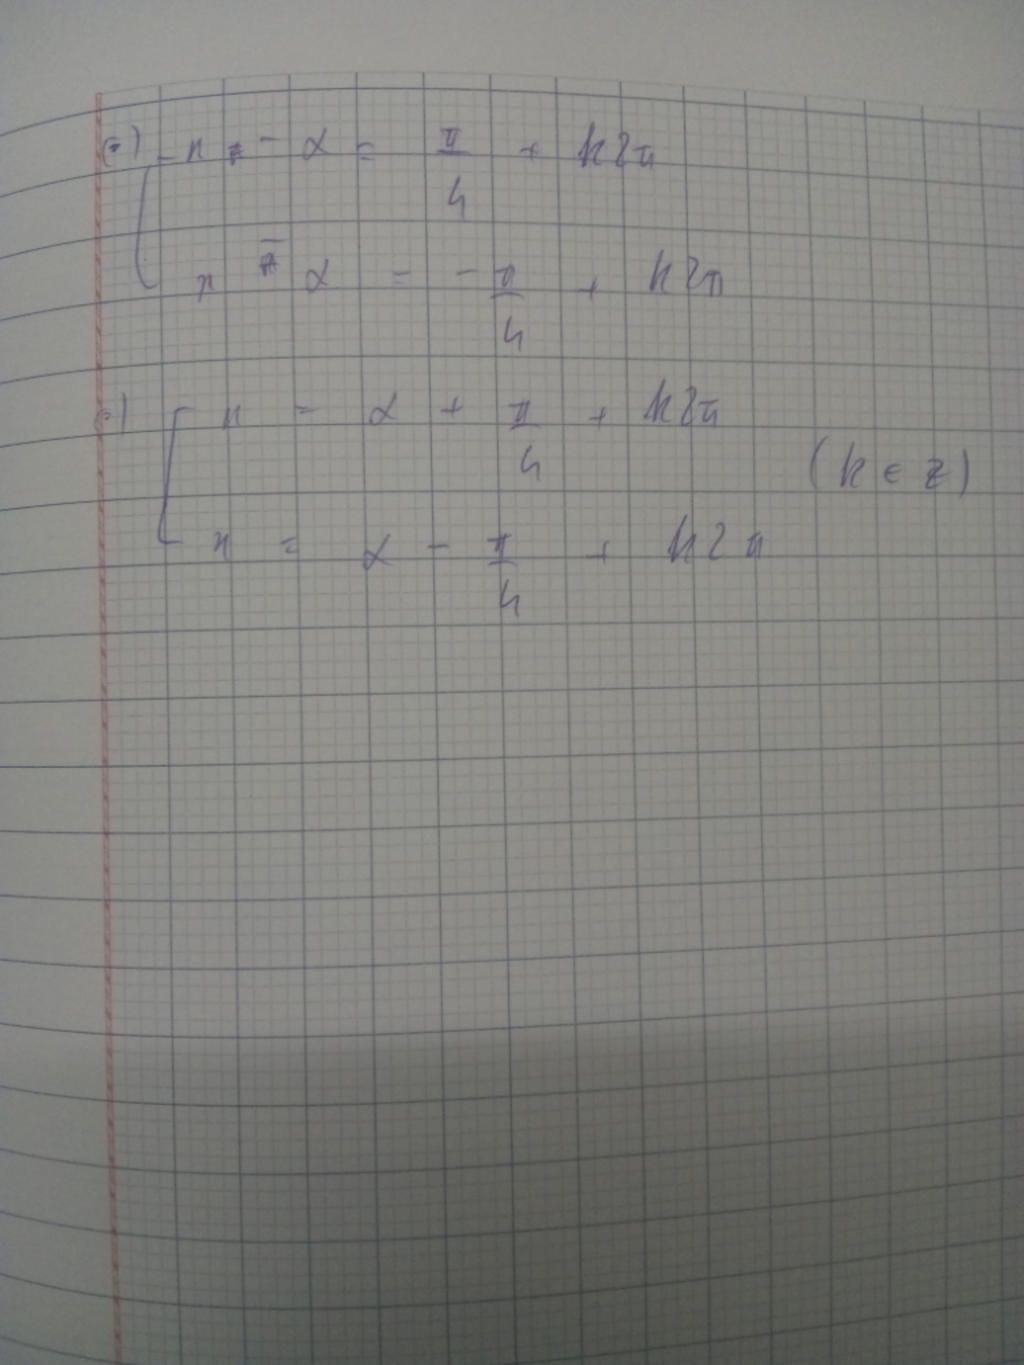 (=) x - α = π/4 + k2π
x - α = -π/4 + k2π
(=) x = α + π/4 + k2π
(k ∈ Z)
x = α - π/4 + k2π